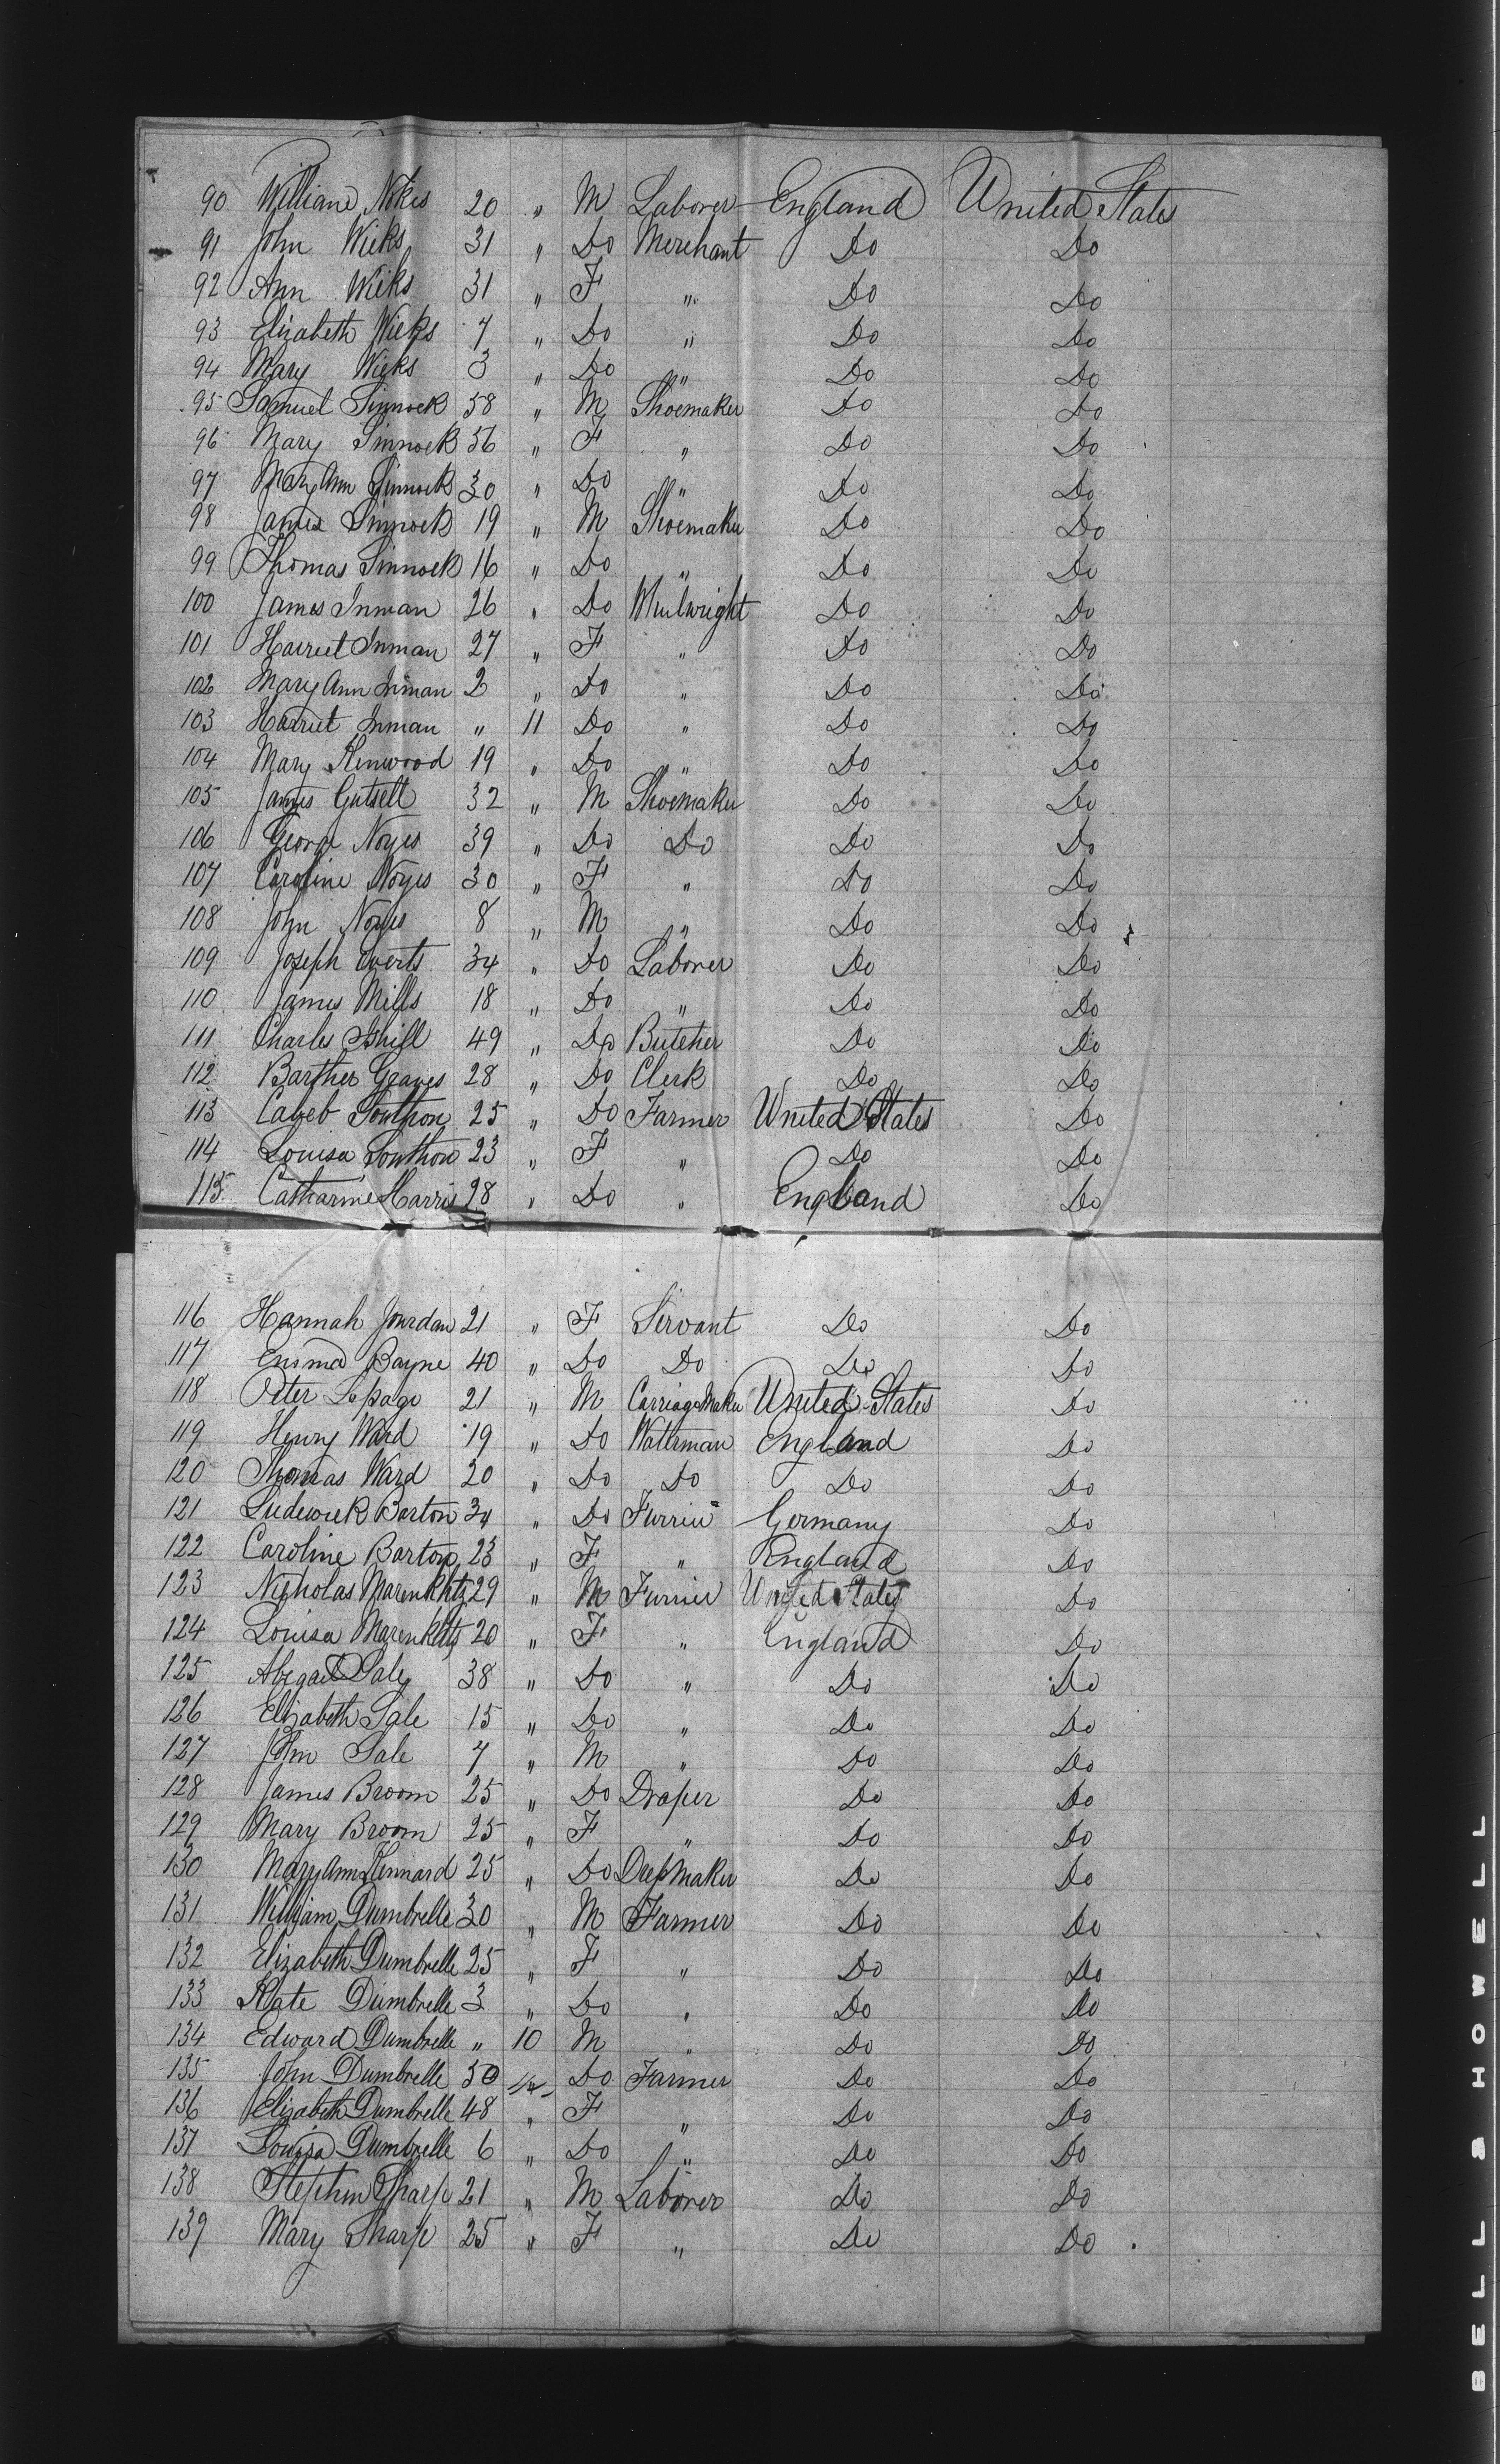 90 William Nokes 20 " M Laborer England United States
91 John Wicks 31 " Do Merchant Do Do
92 Ann Wicks 31 " F " Do Do
93 Elizabeth Wicks 7 " Do " Do Do
94 Mary Wicks 3 " Do " Do Do
95 Samuel Sinnock 58 " M Shoemaker Do Do
96 Mary Sinnock 56 " F " Do Do
97 Mary Ann Sinnock 30 " Do " Do Do
98 James Sinnock 19 " M Shoemaker Do Do
99 Thomas Sinnock 16 " Do " Do Do
100 James Inman 26 " Do Whelwright Do Do
101 Harriet Inman 27 " F " Do Do
102 Mary Ann Inman 2 " Do " Do Do
103 Harriet Inman " 11 Do " Do Do
104 Mary Kenwood 19 " Do " Do Do
105 James Gutsell 32 " M Shoemaker Do Do
106 George Noyes 39 " Do Do Do Do
107 Caroline Noyes 30 " F " Do Do
108 John Noyes 8 " M " Do Do
109 Joseph Everts 34 " Do Laborer Do Do
110 James Mills 18 " Do " Do Do
111 Charles 49 " Do Butcher Do Do
112 Barther Graves 28 " Do Clerk Do Do
113 Caleb Southon 25 " Do Farmer United States Do
114 Louisa Southon 23 " F " Do Do
115 Catharine Harris 28 " Do " England Do
116 Hannah Jourdan 21 " F Servant Do Do
117 Emma Bayne 40 " Do Do Do Do
118 Peter Lepage 21 " M Carriage Maker United States Do
119 Henry Ward 19 " Do Waterman England Do
120 Thomas Ward 20 " Do Do Do Do
121 Ludewick Barton 34 " Do Furrier Germany Do
122 Caroline Barton 23 " F " England Do
123 Nicholas Marenkhtz 29 " M Furrier United States Do
124 Louisa Marenkhtz 20 " F " England Do
125 Abegail Sale 38 " Do " Do Do
126 Elizabeth Sale 15 " Do " Do Do
127 John Sale 7 " M " Do Do
128 James Broom 25 " Do Draper Do Do
129 Mary Broom 25 " F " Do Do
130 Mary Ann Kennard 25 " Do Maker Do Do
131 William Dumbrelle 30 " M Farmer Do Do
132 Elizabeth Dumbrelle 25 " F " Do Do
133 Kate Dumbrelle 3 " Do " Do Do
134 Edward Dumbrelle " 10 M " Do Do
135 John Dumbrelle 50 Do Farmer Do Do
136 Elizabeth Dumbrelle 48 " F " Do Do
137 Louisa Dumbrelle 6 " Do " Do Do
138 Stephen Sharp 21 " M Laborer Do Do
139 Mary Sharp 25 " F " Do Do
BELL & HOWELL